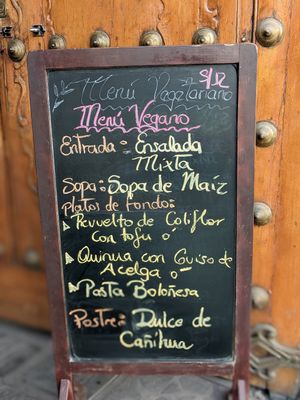 Menú Vegetariano
S/12
Menú Vegano
Entrada: Ensalada
Mixta
Sopa: Sopa de Maíz
Platos de Fondo:
Revuelto de Coliflor
con tofu ó
Quinua con Guiso de
Acelga ó
Pasta Boloñesa
Postre: Dulce de
Cañihua